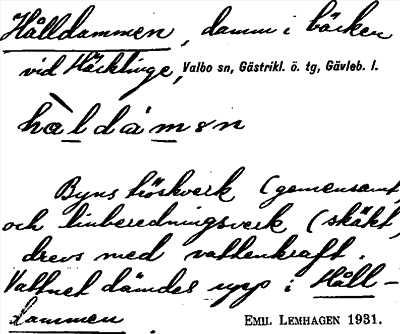 Hålldammen, damm i bäcken
vid Häcklinge, Valbo sn, Gästrikl. ö. tg, Gävleb. l.
hàldámən
Byns tröskverk (gemensamt
och linberedningsverk (skäkt
drevs med vattenkraft.
Vattnet dämdes upp i Håll-
dammen.
EMIL LEMHAGEN 1931.